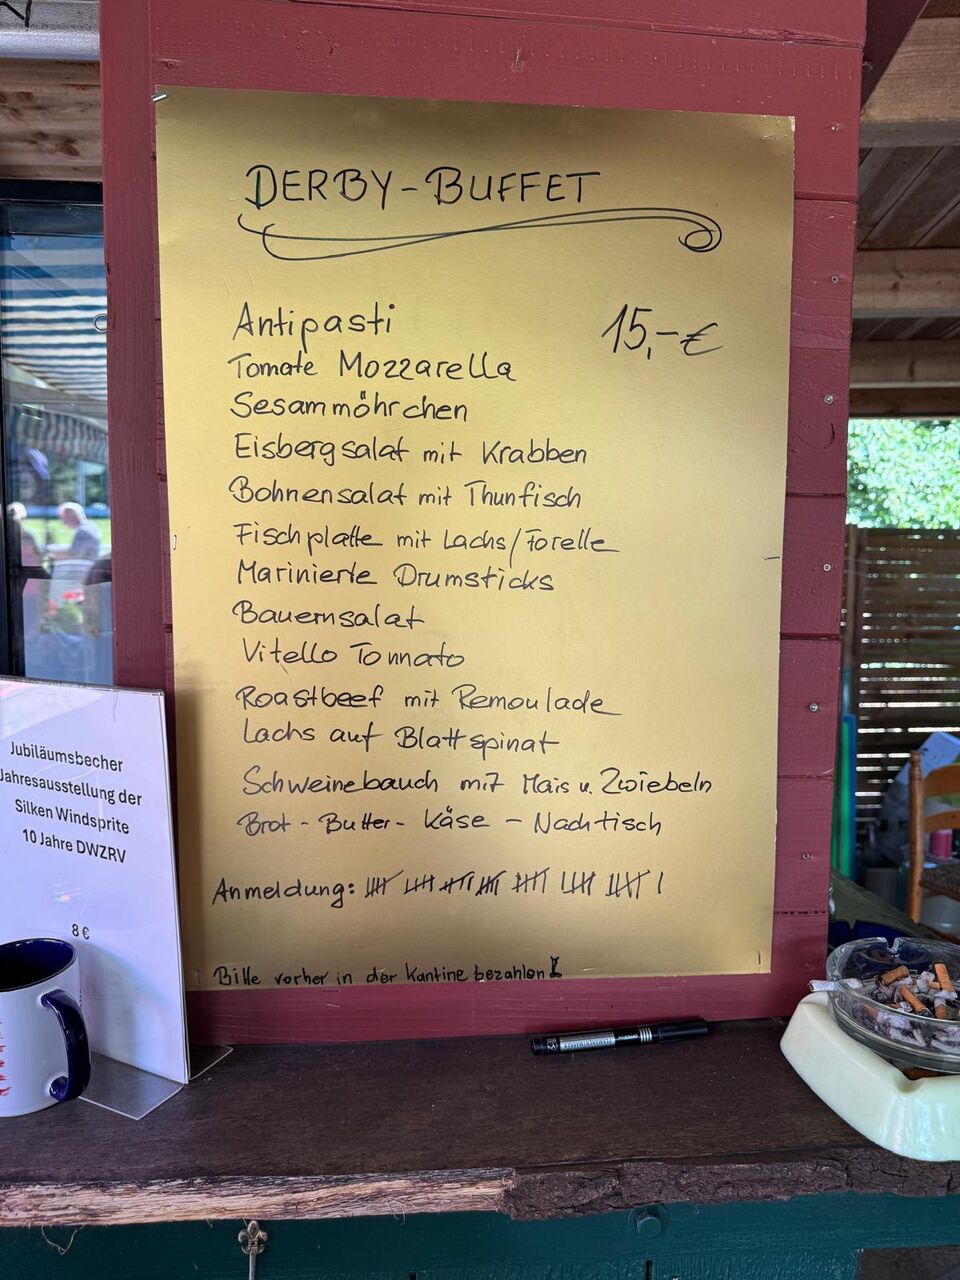 DERBY-BUFFET
Antipasti 15,-€
Tomate Mozzarella
Sesammöhrchen
Eisbergsalat mit Krabben
Bohnensalat mit Thunfisch
Fischplatte mit Lachs/Forelle
Marinierte Drumsticks
Bauernsalat
Vitello Tonnato
Roastbeef mit Remoulade
Lachs auf Blattspinat
Schweinebauch mit Mais u. Zwiebeln
Brot - Butter - Käse - Nachtisch
Anmeldung:
Bitte vorher in der Kantine bezahlen!
Jubiläumsbecher
Jahresausstellung der
Silken Windsprite
10 Jahre DWZRV
8 €